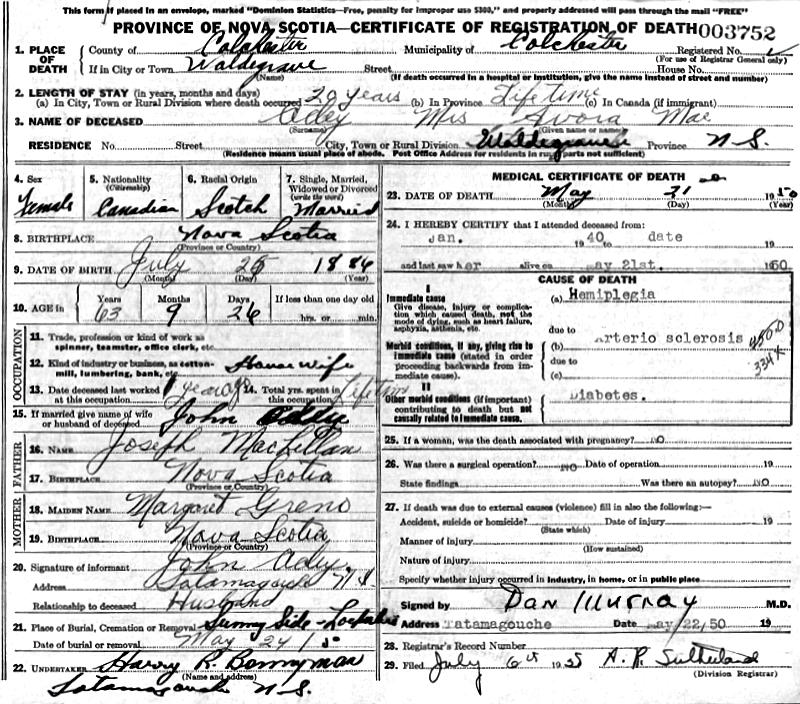 This form if placed in an envelope, marked "Dominion Statistics—Free, penalty for improper use $300," and properly addressed will pass through the mail "FREE"
PROVINCE OF NOVA SCOTIA—CERTIFICATE OF REGISTRATION OF DEATH 003752
1. PLACE OF DEATH County of Colchester Municipality of Colchester Registered No.
(For use of Registrar General only)
If in City or Town Waldegrave Street House No.
(Name) (If death occurred in a hospital or institution, give the name instead of street and number)
2. LENGTH OF STAY (in years, months and days)
(a) In City, Town or Rural Division where death occurred 20 years (b) In Province Lifetime (c) In Canada (if immigrant)
3. NAME OF DECEASED Adey Mrs Avora Mae
(Surname) (Given name or name)
RESIDENCE No. Street City, Town or Rural Division Waldegrave Province N.S.
(Residence means usual place of abode. Post Office Address for residents in rural parts not sufficient)
4. Sex Female
5. Nationality (Citizenship) Canadian
6. Racial Origin Scotch
7. Single, Married, Widowed or Divorced (write the word) Married
8. BIRTHPLACE Nova Scotia
(Province or Country)
9. DATE OF BIRTH July 25 1886
(Month) (Day) (Year)
10. AGE IN Years 63 Months 9 Days 26 If less than one day old hrs. or min.
OCCUPATION
11. Trade, profession or kind of work as spinner, teamster, office clerk, etc.
12. Kind of industry or business, as cotton-mill, lumbering, bank, etc. House wife
13. Date deceased last worked at this occupation 1 year ago 14. Total yrs. spent in this occupation Lifetime
15. If married give name of wife or husband of deceased John
FATHER
16. Name Joseph MacLellan
17. Birthplace Nova Scotia
(Province or Country)
MOTHER
18. Maiden Name Margaret Greno
19. Birthplace Nova Scotia
(Province or Country)
20. Signature of informant John Adey
Address Tatamagouche N S
Relationship to deceased Husband
21. Place of Burial, Cremation or Removal Sunny Side
Date of burial or removal May 24
22. Undertaker Harry R. Bonnyman
(Name and address)
Tatamagouche N.S.
MEDICAL CERTIFICATE OF DEATH
23. DATE OF DEATH May 21 1950
(Month) (Day) (Year)
24. I HEREBY CERTIFY that I attended deceased from:
Jan. 1940 to date 19
and last saw her alive on May 21st. 1950
CAUSE OF DEATH
I
Immediate cause
Give disease, injury or complication which caused death, not the mode of dying, such as heart failure, asphyxia, asthenia, etc.
(a) Hemiplegia
due to
Morbid conditions, if any, giving rise to immediate cause (stated in order proceeding backwards from immediate cause).
(b) Arterio sclerosis 450.0
due to
(c) 334X
II
Other morbid conditions (if important) contributing to death but not causally related to immediate cause.
Diabetes.
25. If a woman, was the death associated with pregnancy? NO
26. Was there a surgical operation? NO Date of operation 19
State findings Was there an autopsy? NO
27. If death was due to external causes (violence) fill in also the following:—
Accident, suicide or homicide? Date of injury 19
(State which)
Manner of injury
(How sustained)
Nature of injury
Specify whether injury occurred in industry, in home, or in public place
Signed by Dan Murray M.D.
Address Tatamagouche Date May 22, 50 19
28. Registrar's Record Number
29. Filed July 6th A. R. Sutherland
(Division Registrar)